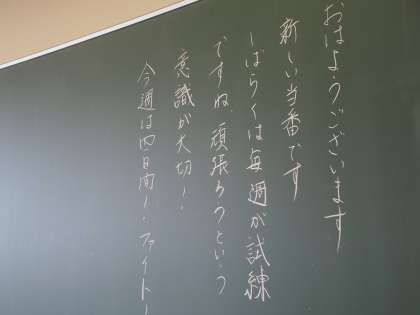 おはようございます
新しい当番です
しばらくは毎週が試練
ですね 頑張ろうという
意識が大切!
今週は四日間!ファイト!